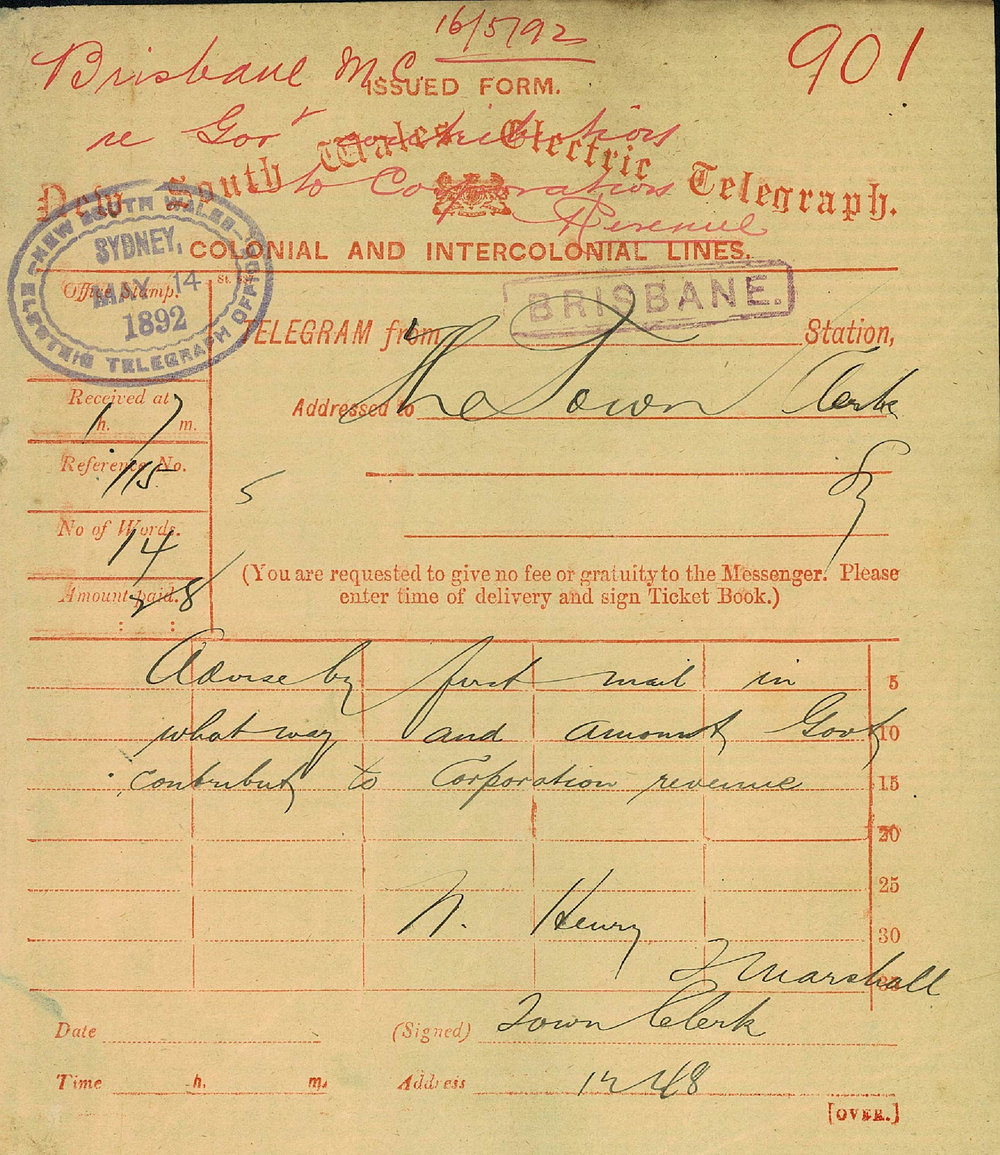 16/5/92
Brisbane M.C.
901
ISSUED FORM.
re Govt contributions
New South Wales Electric Telegraph.
to Corporation
Revenue
COLONIAL AND INTERCOLONIAL LINES.
NEW SOUTH WALES
ELECTRIC TELEGRAPH OFFICE
SYDNEY,
MAY 14
1892
Office Stamp.
BRISBANE.
TELEGRAM from Station,
Addressed to The Town Clerk
Received at
1 h. 7 m.
Reference No.
115
Sy
5
No of Words.
14
Amount paid.
2/8
(You are requested to give no fee or gratuity to the Messenger. Please
enter time of delivery and sign Ticket Book.)
Advise by first mail in 5
what way and amount Govt 10
contribut to Corporation revenue 15
20
25
Henry 30
Marshall 35
Date (Signed) Town Clerk
Time h. m. Address 12 48
[OVER.]